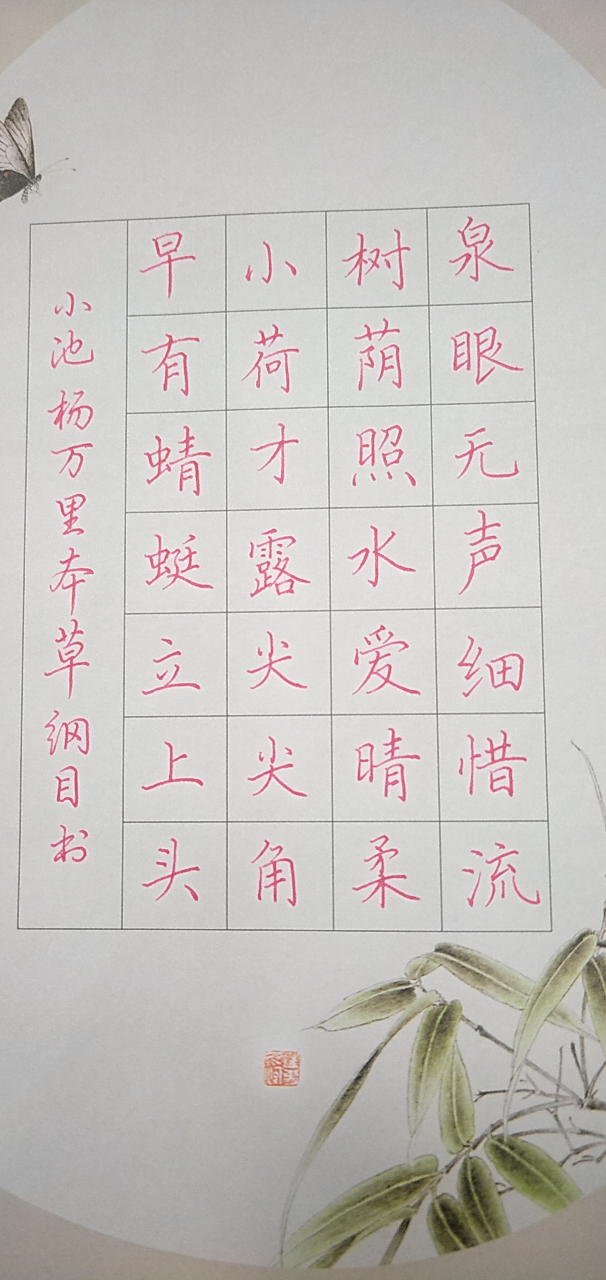 泉眼无声细惜流
树荫照水爱晴柔
小荷才露尖尖角
早有蜻蜓立上头
小池杨万里本草纲目书